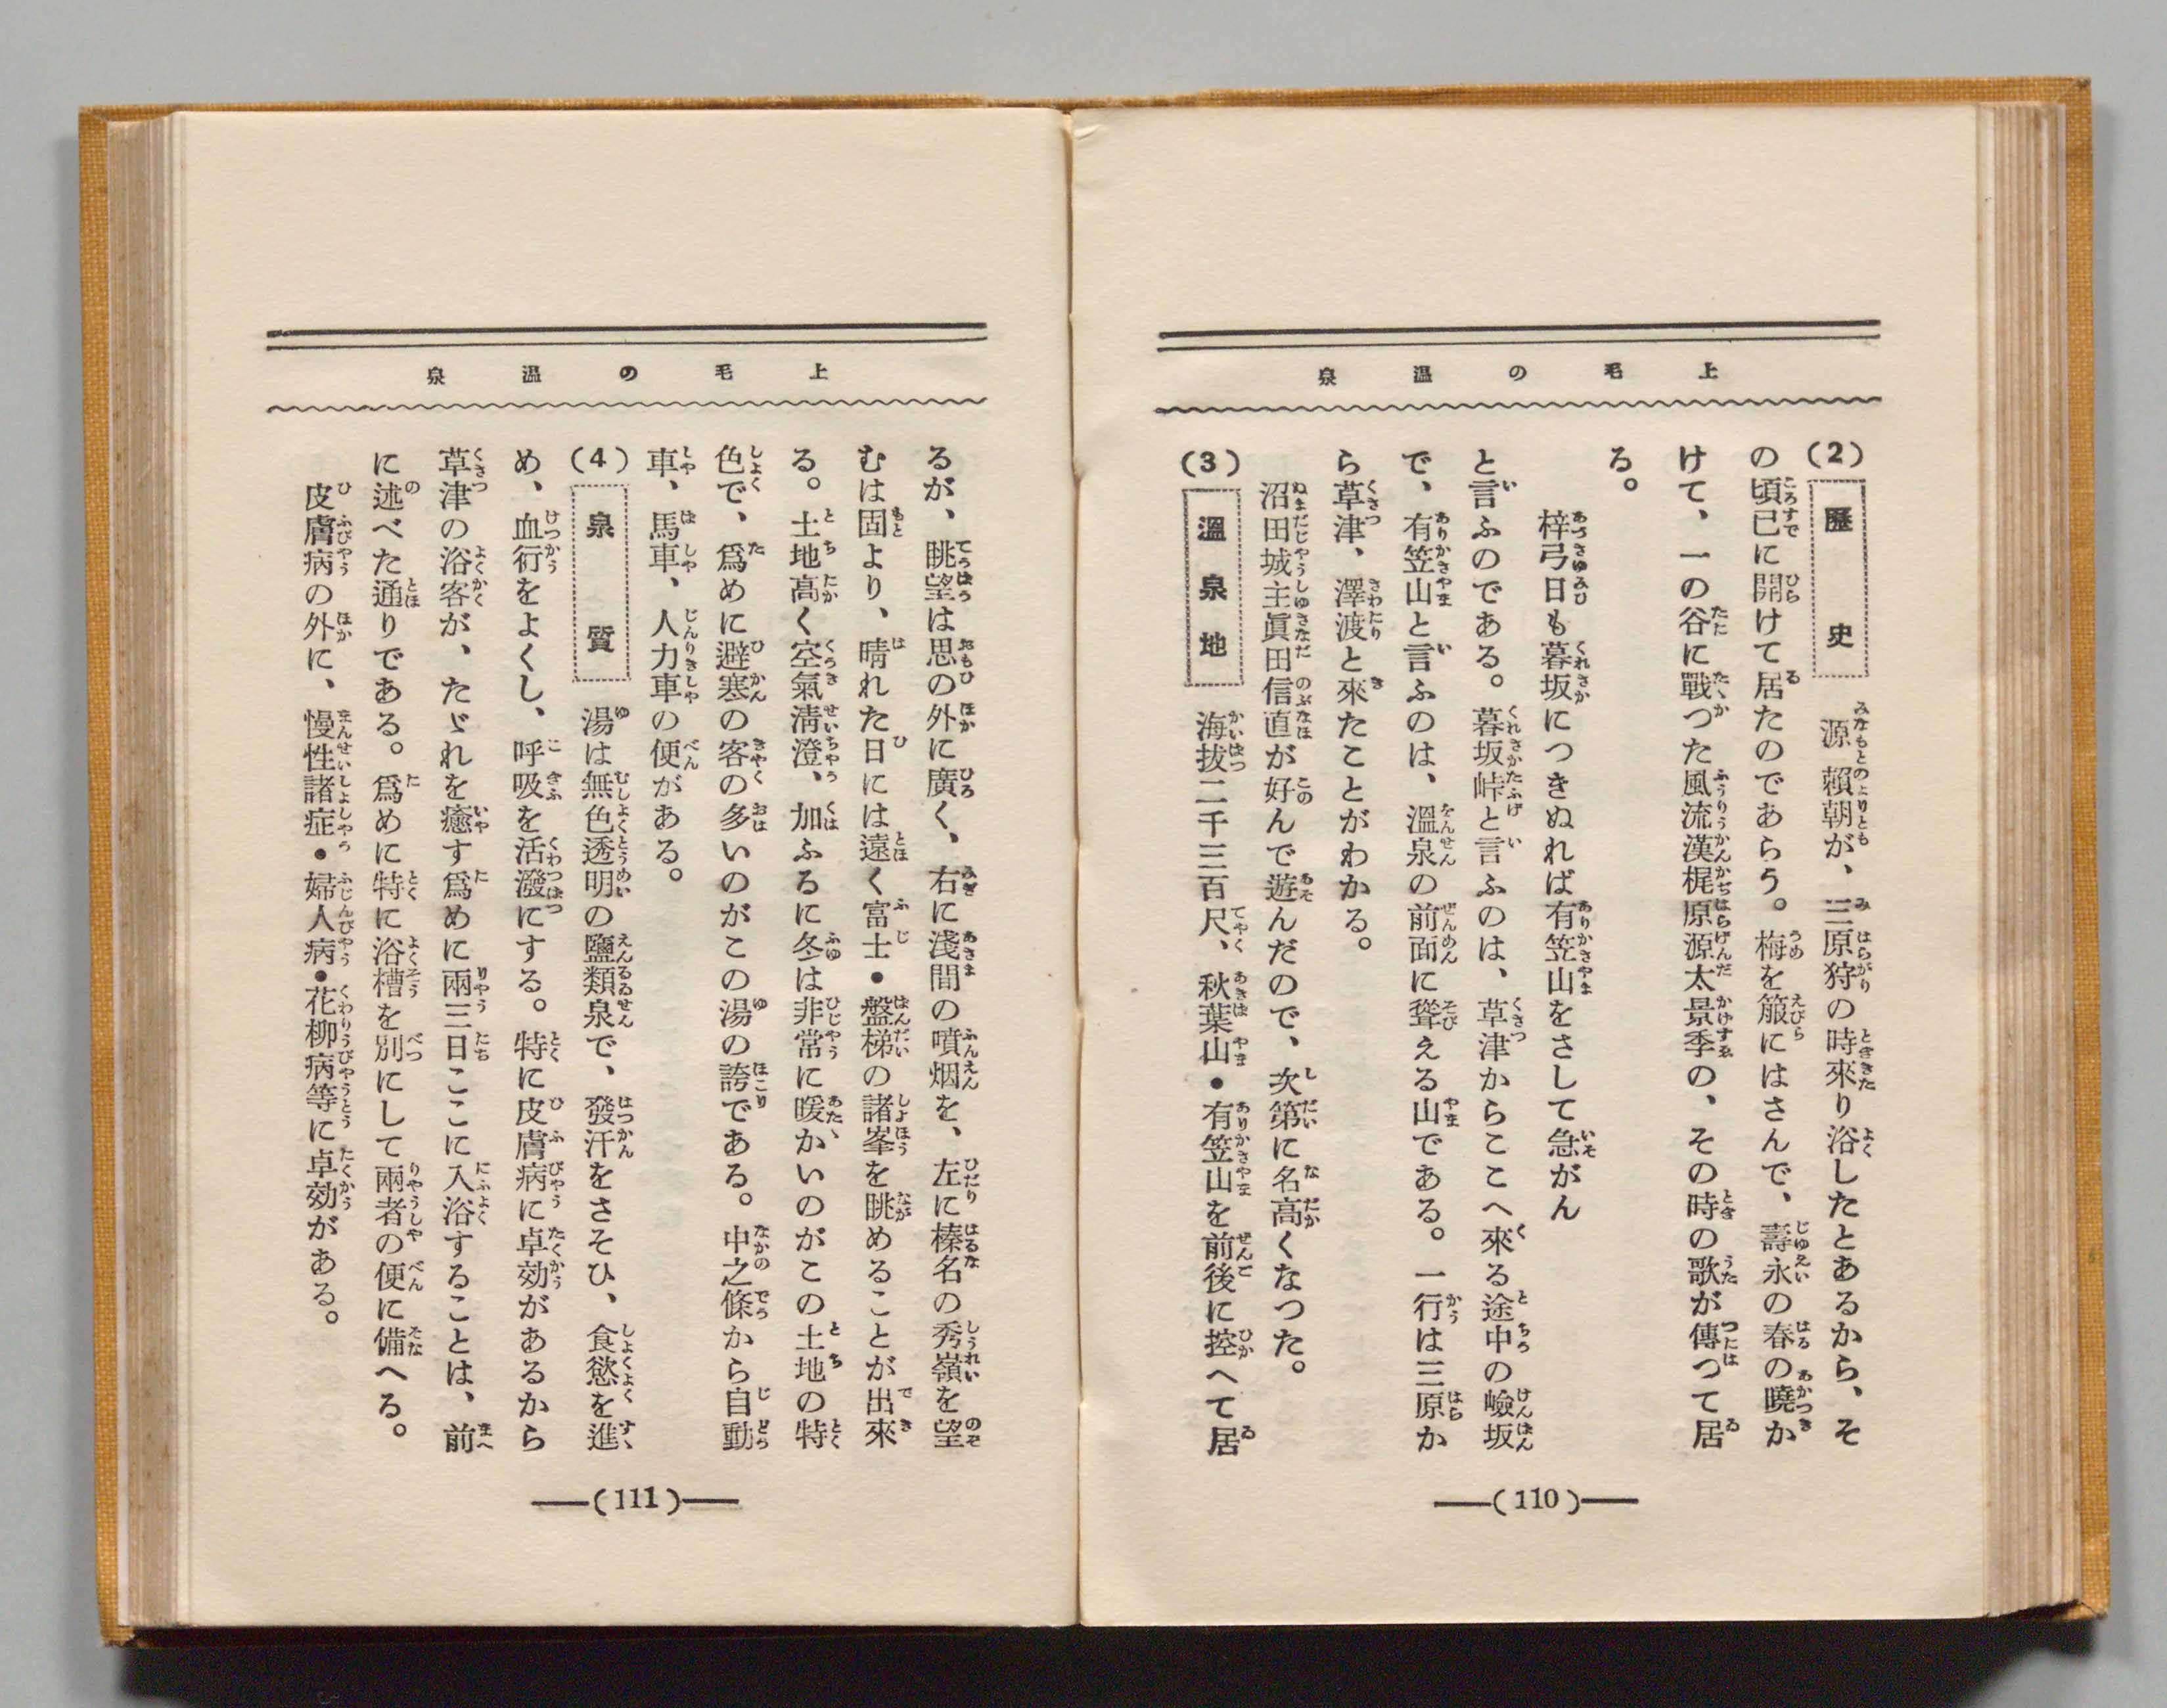 上毛の温泉
(2) 歷史 源賴朝が、三原狩の時來り浴したとあるから、そ
の頃已に開けて居たのであらう。梅を箙にはさんで、壽永の春の曉か
けて、一の谷に戰つた風流漢梶原源太景季の、その時の歌が傳つて居
る。
梓弓日も暮坂につきぬれば有笠山をさして急がん
と言ふのである。暮坂峠と言ふのは、草津からここへ來る途中の嶮坂
で、有笠山と言ふのは、溫泉の前面に聳える山である。一行は三原か
ら草津、澤渡と來たことがわかる。
沼田城主眞田信直が好んで遊んだので、次第に名高くなつた。
(3) 溫泉地 海拔二千三百尺、秋葉山・有笠山を前後に控へて居
―(110)―
上毛の温泉
るが、眺望は思の外に廣く、右に淺間の噴烟を、左に榛名の秀嶺を望
むは固より、晴れた日には遠く富士・盤梯の諸峯を眺めることが出來
る。土地高く空氣淸澄、加ふるに冬は非常に暖かいのがこの土地の特
色で、爲めに避寒の客の多いのがこの湯の誇である。中之條から自動
車、馬車、人力車の便がある。
(4) 泉質 湯は無色透明の鹽類泉で、發汗をさそひ、食慾を進
め、血行をよくし、呼吸を活潑にする。特に皮膚病に卓効があるから
草津の浴客が、たゞれを癒す爲めに兩三日ここに入浴することは、前
に述べた通りである。爲めに特に浴槽を別にして兩者の便に備へる。
皮膚病の外に、慢性諸症・婦人病・花柳病等に卓効がある。
―(111)―